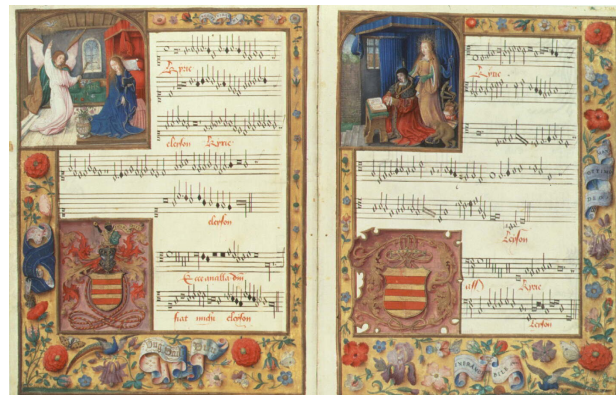 Kyrie
eleyson Kyrie
eleyson
Ecce ancilla dm
fiat michi eleyson
Kyrie
Leyson
Kyrie
Leyson